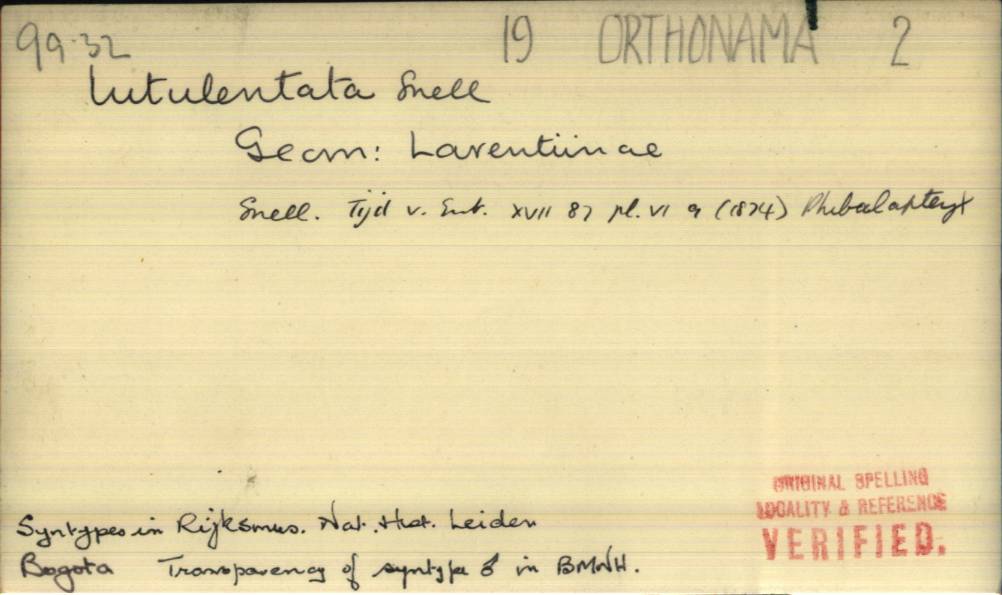 99.32 19 ORTHONAMA 2
lutulentata Snell
Geom: Larentiinae
Snell. Tijd v. Ent. XVII 87 pl. VI 9 (1874) Phibalapteryx
Syntypes in Rijksmus. Nat. Hist. Leiden
Bogota Transparency of syntype ♂ in BMNH.
ORIGINAL SPELLING
LOCALITY & REFERENCE
VERIFIED.